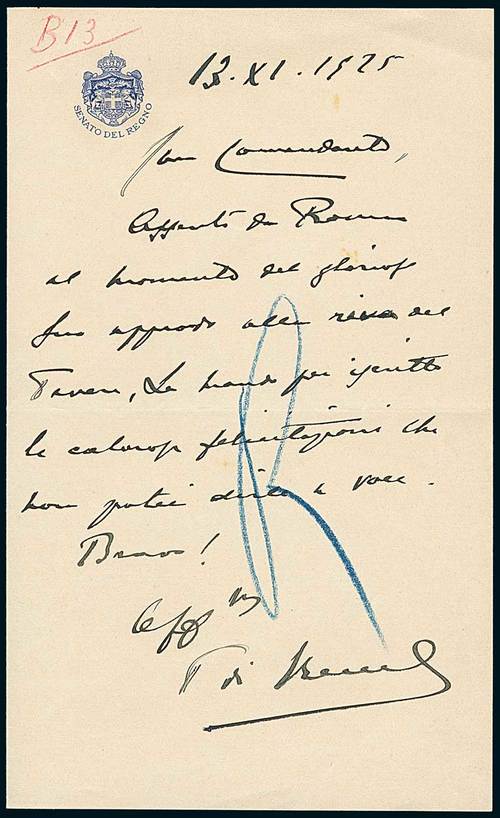 B13
13.XI.1925
SENATO DEL REGNO
Comandante,
Assente da Roma
al momento del glorioso
suo approdo alla riva del
Tevere, Le mando per iscritto
le calorose felicitazioni che
non potei dirle a voce.
Bravo!
Aff mo
T di